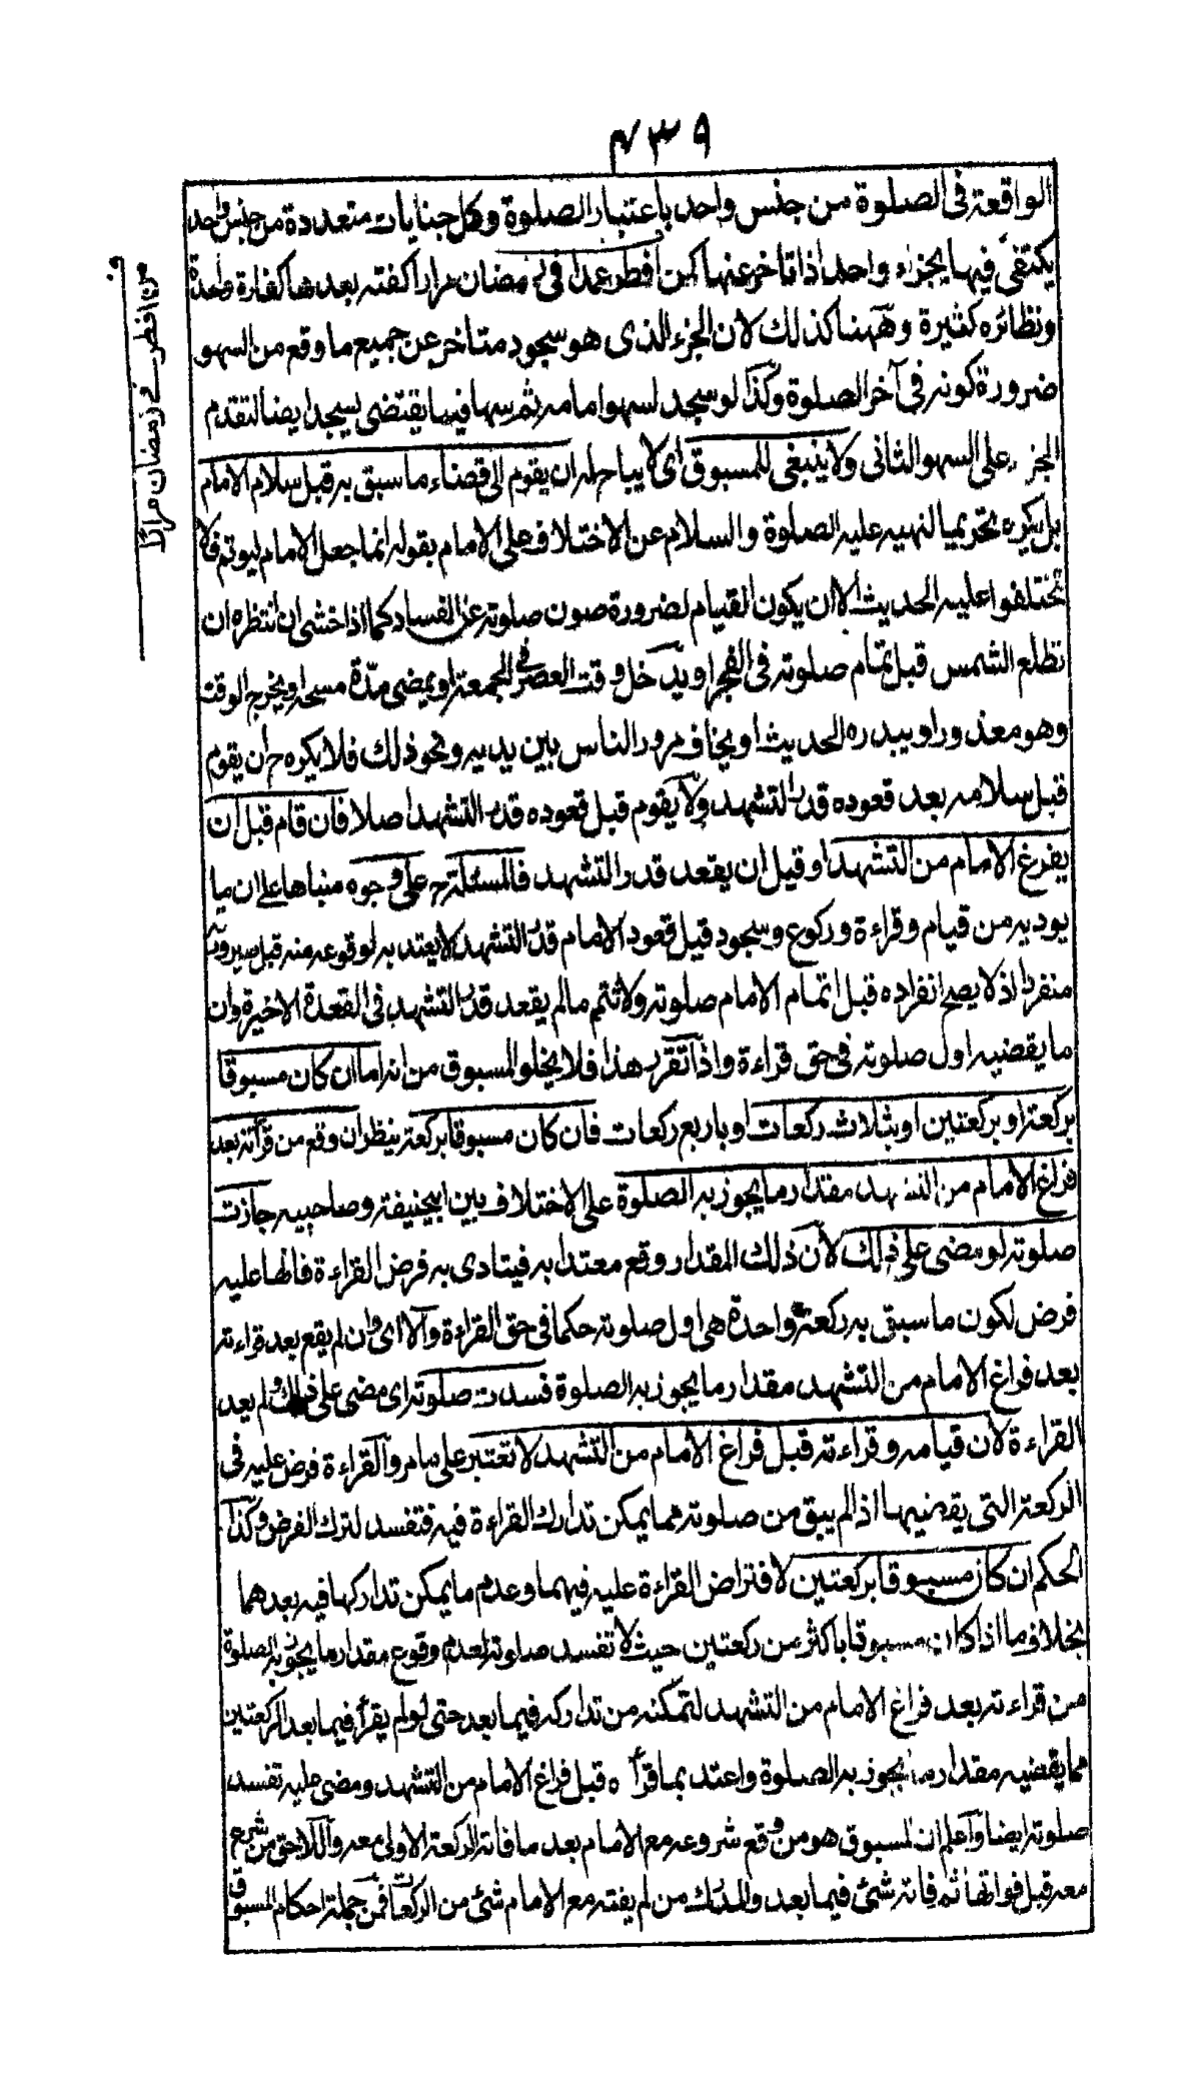 ٤٣٩
الواقعة فى الصلوة من جنس واحد باعتبار الصلوة وكل جنايات متعددة من جنس واحد
يكتفى فيها بجزاء واحد اذا تاخر عنها كمن افطر عمدا فى رمضان مرارا كفته بعدها كفارة واحدة
ونظائره كثيرة وههنا كذلك لان الجزء الذى هو سجود متاخر عن جميع ما وقع من السهو
ضرورة كونه فى آخر الصلوة وكذا لو سجد لسهو امامه ثم سها فيما يقتضى يسجد ايضا لتقدم
الجزء على السهو الثانى ولا ينبغى للمسبوق اى لا يباح له ان يقوم الى قضاء ما سبق به قبل سلام الامام
بل يكره تحريما لنهيه عليه الصلوة والسلام عن الاختلاف على الامام بقوله انما جعل الامام ليوتم فلا
تختلفوا عليه الحديث الا ان يكون القيام لضرورة صون صلوته عن الفساد كما اذا خشى ان انتظره ان
تطلع الشمس قبل تمام صلوته فى الفجر او يدخل وقت العصر فى الجمعة او يمضى مدة مسحه او يخرج الوقت
وهو معذور او يبدره الحديث او يخاف مرور الناس بين يديه ونحو ذلك فلا يكره ح ان يقوم
قبل سلامه بعد قعوده قدر التشهد ولا يقوم قبل قعوده قدر التشهد اصلا فان قام قبل ان
يفرغ الامام من التشهد او قبل ان يقعد قدر التشهد فالمسئلة ح على وجوه مبناها على ان ما
يوديه من قيام وقراءة وركوع وسجود قبل قعود الامام قدر التشهد لا يعتد به لوقوعه منه قبل صيرورته
منفردا اذ لا يصح انفراده قبل اتمام الامام صلوته ولا تتم ما لم يقعد قدر التشهد فى القعدة الاخيرة وان
ما يقضيه اول صلوته فى حق قراءة واذا تقرر هذا فلا يخلو المسبوق من انه اما ان كان مسبوقا
بركعة او بركعتين او بثلاث ركعات او باربع ركعات فان كان مسبوقا بركعة ينظر ان وقع من قرآته بعد
فراغ الامام من التشهد مقدار ما يجوز به الصلوة على الاختلاف بين ابيحنيفة وصاحبيه جازت
صلوته لو مضى على ذلك لان ذلك المقدار وقع معتدا به فيتادى به فرض القراءة فانها عليه
فرض لكون ما سبق به ركعة واحدة هى اول صلوته حكما فى حق القراءة والا اى وان لم يقع بعد قراءته
بعد فراغ الامام من التشهد مقدار ما يجوز به الصلوة فسدت صلوته اى مضى على ذلك ولم يعد
القراءة لان قيامه وقراءته قبل فراغ الامام من التشهد لا تعتبر على ما مر والقراءة فرض عليه فى
الركعة التى يقضيها اذ لم يبق من صلوته مما يمكن تدارك القراءة فيه فتفسد لترك الفرض وكذا
الحكم ان كان مسبوقا بركعتين لافتراض القراءة عليه فيهما وعدم ما يمكن تداركها فيه بعدهما
بخلاف ما اذا كان مسبوقا باكثر من ركعتين حيث لا تفسد صلوته لعدم وقوع مقدار ما يجوز به الصلوة
من قراءته بعد فراغ الامام من التشهد لتمكنه من تداركه فيما بعد حتى لو لم يقرأ فيما بعد الركعتين
مما يقضيه مقدار ما يجوز به الصلوة واعتد بما قرأه قبل فراغ الامام من التشهد ومضى عليه تفسد
صلوته ايضا واعلم ان المسبوق هو من وقع شروعه مع الامام بعد ما فاته الركعة الاولى معه واللاحق من شرع
معه قبل فواتها ثم فاته شئ فيما بعد والمدرك من لم يفته مع الامام شئ من الركعات فمن جملة احكام المسبوق
من افطر فے رمضان مرارًا